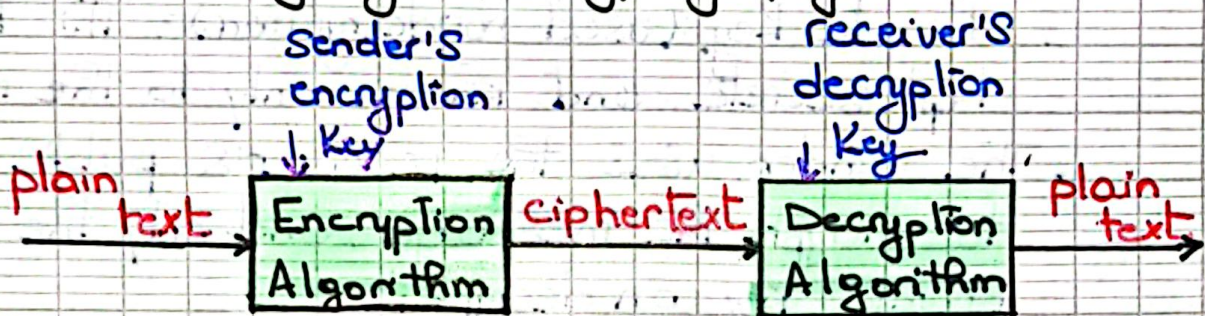 sender's
encryption
Key
receiver's
decryption
Key
plain
text
Encryption
Algorithm
ciphertext
Decryption
Algorithm
plain
text